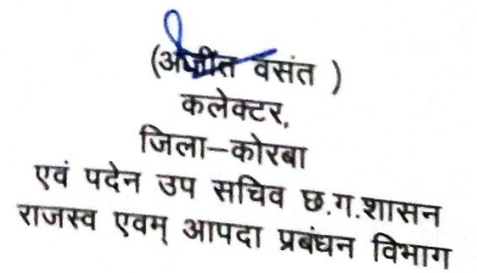 (अजीत वसंत )
कलेक्टर,
जिला–कोरबा
एवं पदेन उप सचिव छ.ग.शासन
राजस्व एवम् आपदा प्रबंधन विभाग